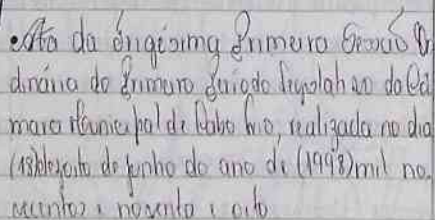 Ata da Trigésima Primeira Sessão Or
dinária do Primeiro Período Legislativo da Câ
mara Municipal de Cabo Frio, realizada no dia
(18) dezoito de junho do ano de (1998) mil no
vecentos e noventa e oito